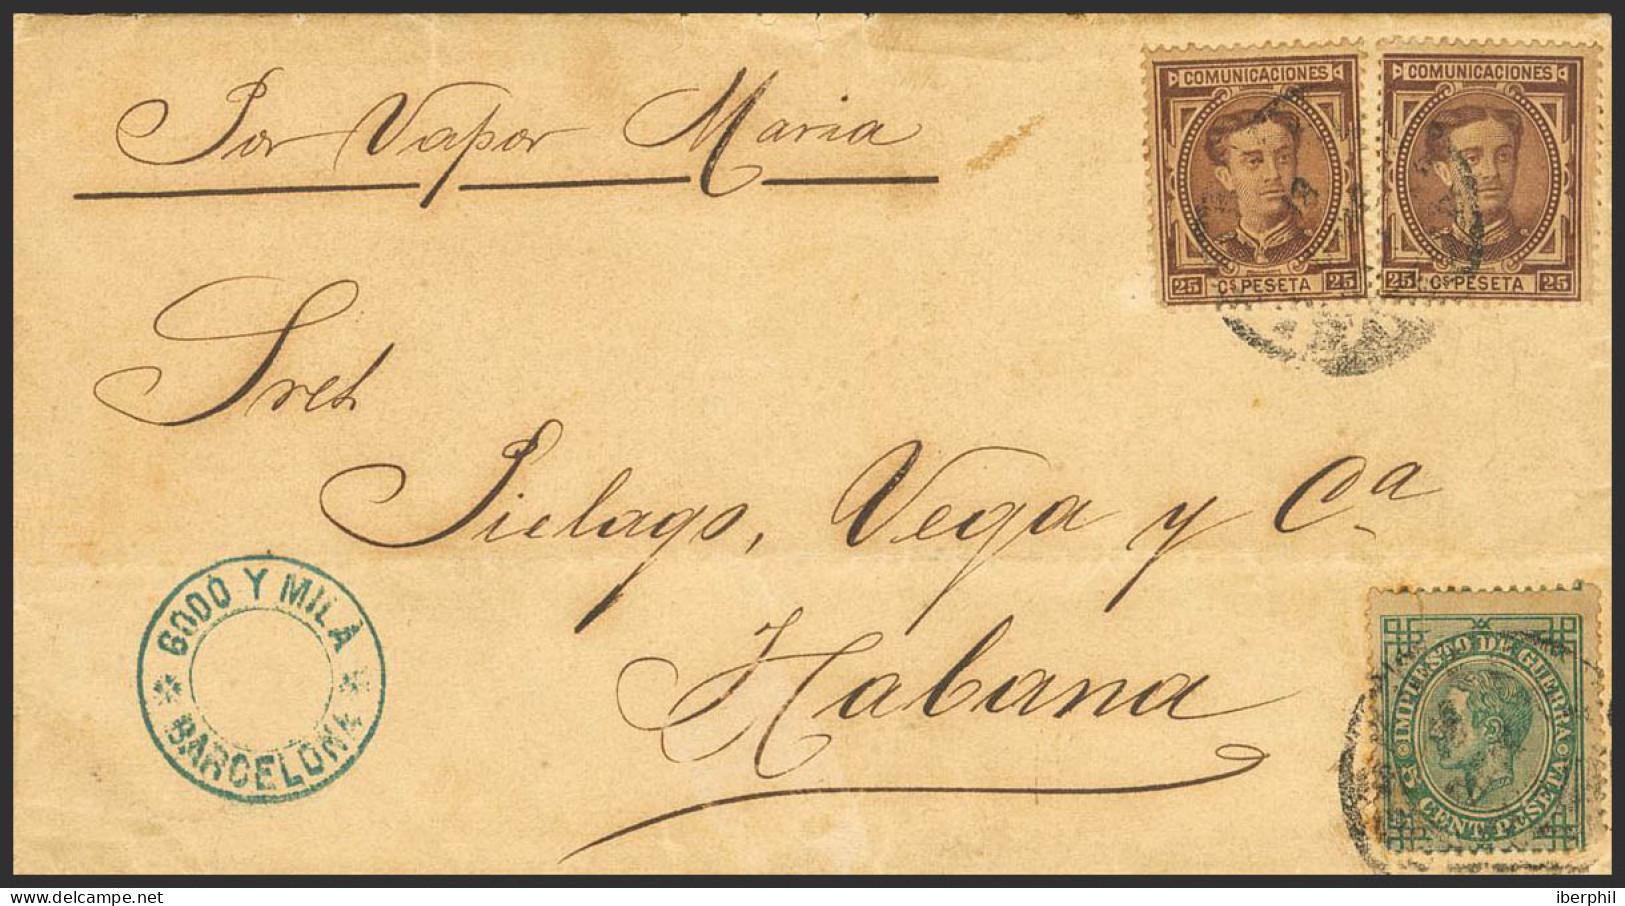 Por Vapor Maria
COMUNICACIONES
25 Cs PESETA 25
COMUNICACIONES
25 Cs PESETA 25
Sres
Pielago, Vega y Ca
Habana
GODÓ Y MILÁ
BARCELONA
IMPUESTO DE GUERRA
5 CENT. PESETA
iberphil